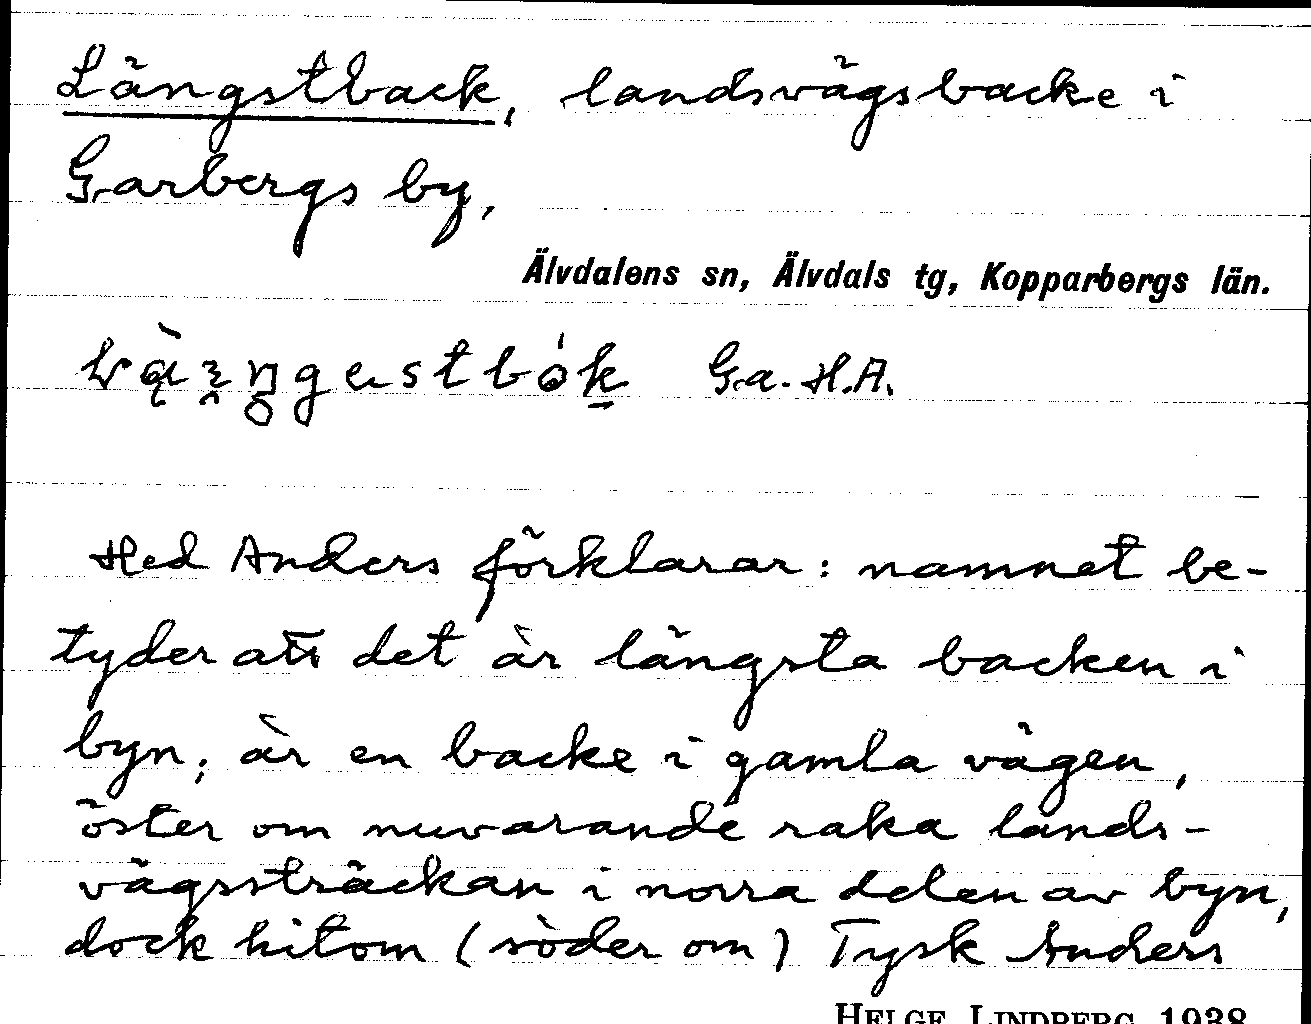 Längstback, landsvägsbacke i
Garbergs by,
Älvdalens sn, Älvdals tg, Kopparbergs län.
Ga. H.A.
Hed Anders förklarar: namnet be-
tyder att det är längsta backen i
byn; är en backe i gamla vägen,
öster om nuvarande raka lands-
vägssträckan i norra delen av byn,
dock hitom (söder om) Tysk Anders
HELGE LINDBERG 1938